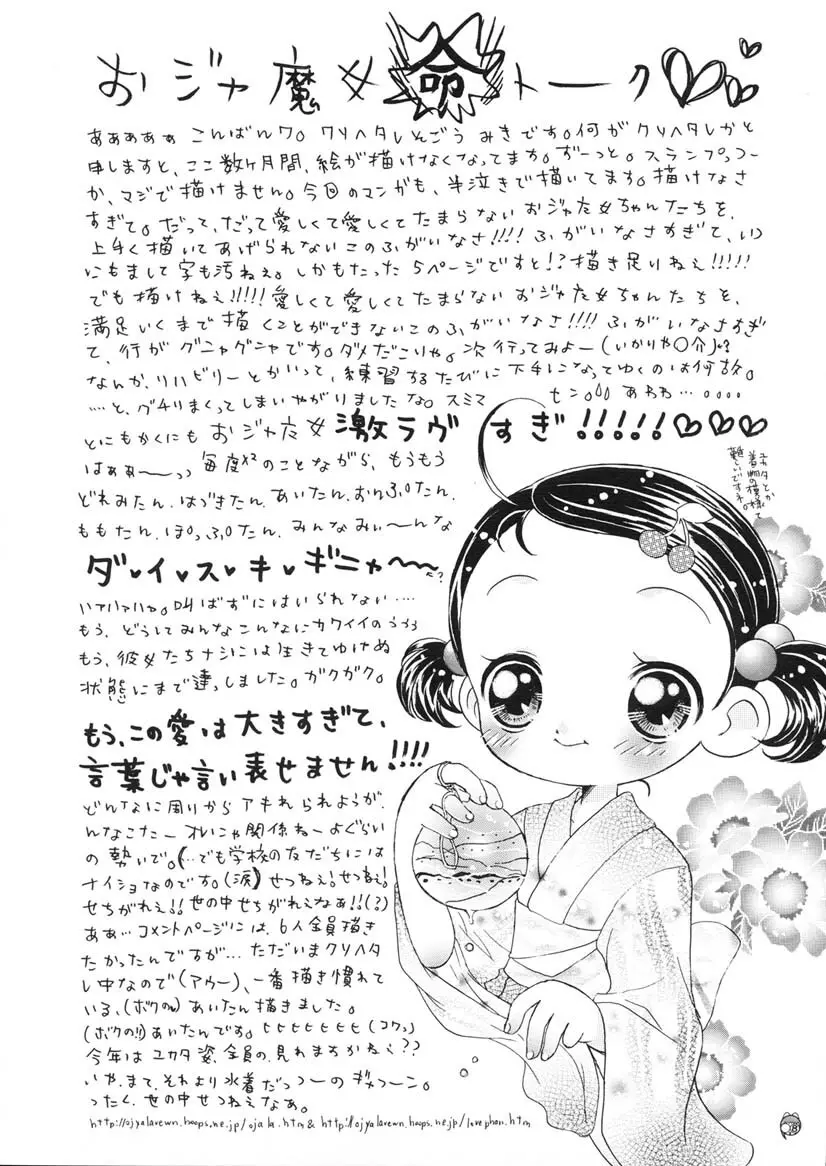 おジャ魔女命トーク♡♡♡
ああああぁ こんばんワ。クリハタレそごう みきです。何がクリハタレかと
申しますと、ここ数ヶ月間、絵が描けなくなってます。ずーっと。スランプっつー
か、マジで描けません。今回のマンガも、半泣きで描いてます。描けなさ
すぎて。だって、だって愛しくて愛しくてたまらない おジャ女ちゃんたちを、
上手く描いてあげられないこのふがいなさ!!!! ふがいなさすぎて、いつ
にもまして字も汚ねぇ。しかもたった5ページですと!? 描き足りねえ!!!!!
でも描けねえ!!!!! 愛しくて愛しくてたまらない おジャ女ちゃんたちを、
満足いくまで描くことができないこのふがいなさ!!!! ふがいなさすぎ
て、行がグニャグニャです。ダメだこりゃ。次行ってみよー(いかりや〇介)
なんか、リハビリーとかいって、練習するたびに下手になってゆくのは何故。
....と、グチりまくってしまいやがりましたな。スミマセン。 あわわ…。。。。
とにもかくにも おジャ女 激ラヴすぎ!!!!!♡♡♡
はぁぁ〜っっ 毎度のことながら、もうもう
どれみたん、はづきたん、あいたん、おんぷたん、
ももたん、ぽっぷたん、みんなみぃ〜んな
ダ・イ・ス・キ・ギニャ〜
ハァハァハァ。叫ばずにはいられない....
もう、どうしてみんなこんなにカワイイのううう
もう、彼女たちナシには生きてゆけぬ
状態にまで達っしました。ガクガク。
もう、この愛は大きすぎて、
言葉じゃ言い表せません!!!!
どんなに周りからアキれられようが、
んなこたー オレにゃ関係ねーよぐらい
の勢いで。(…でも学校の友だちには
ナイショなのです。(涙)せつねえ!せつねえ!
せちがれえ!!世の中せちがれえなぁ!!(?)
ああ… コメントページには、6人全員描き
たかったんですが… ただいまクリハタ
レ中なので(アウー)、一番描き慣れて
いる、(ボクの)あいたん描きました。
(ボクの!!)あいたんです。ヒヒヒヒヒヒ(コワっ)
今年はユカタ姿、全員の、見れますかねえ??
いや、まて、それより水着だっつーのギャフーン。
ったく、世の中せつねえなぁ。
http://ojyalavewn.hoops.ne.jp/ojala.htm & http://ojyalavewn.hoops.ne.jp/lovephan.htm
ユカタとか
着物の模様て
難しいですネ。